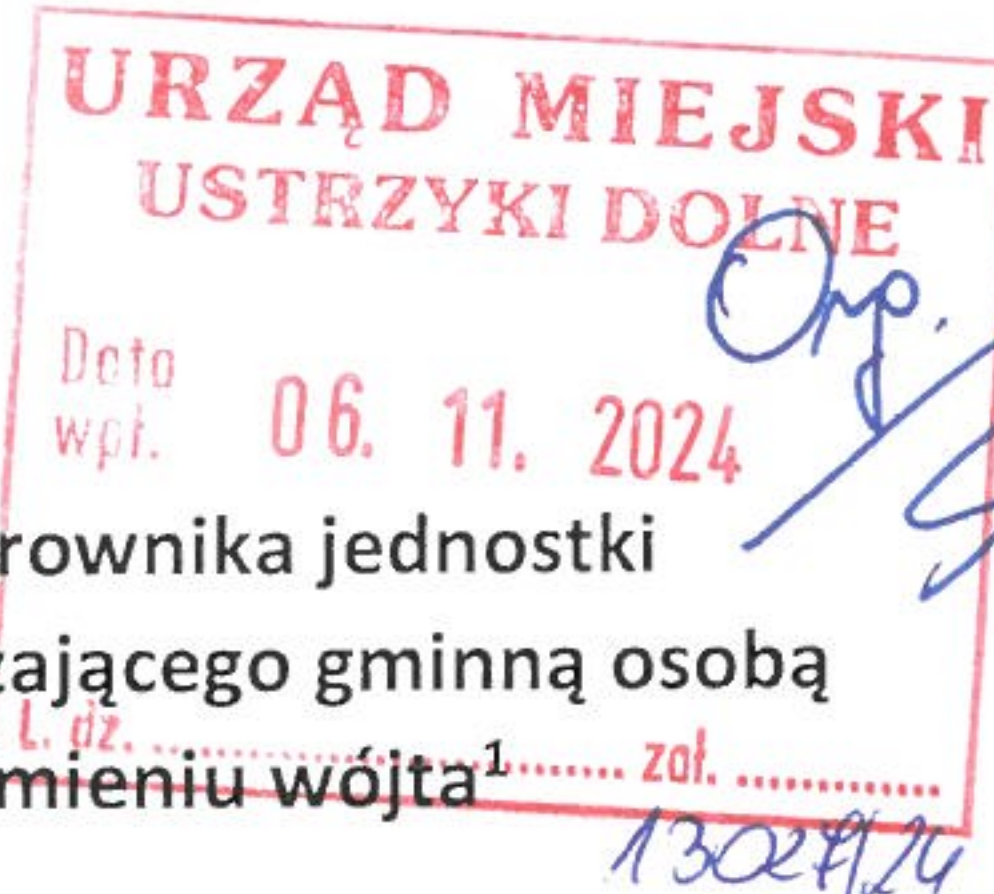 URZĄD MIEJSKI
USTRZYKI DOLNE
Org.
Data
wpł. 06. 11. 2024
rownika jednostki
zającego gminną osobą
L. dz. .................... zał. ..............
mieniu wójta¹